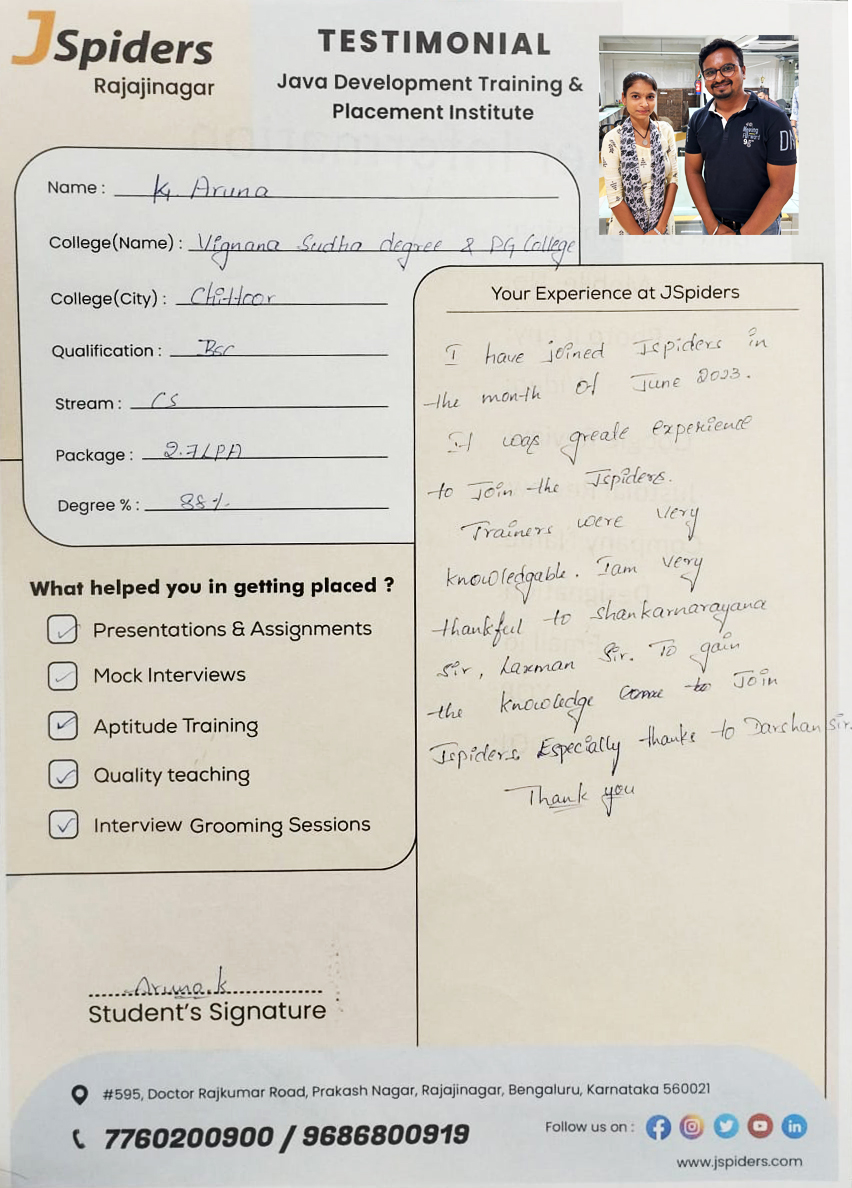 JSpiders
Rajajinagar
TESTIMONIAL
Java Development Training &
Placement Institute
Name : K. Aruna
College(Name) : Vignana Sudha degree & PG College
College(City) : Chittoor
Qualification : Bsc
Stream : CS
Package : 2.7LPA
Degree % : 88%
What helped you in getting placed ?
Presentations & Assignments
Mock Interviews
Aptitude Training
Quality teaching
Interview Grooming Sessions
Your Experience at JSpiders
I have joined Jspiders in
the month of June 2023.
It was greate experience
to Join the Jspiders.
Trainers were very
knowledgable. Iam very
thankful to Shankarnarayana
Sir, Laxman Sir. To gain
the knowledge come to Join
Jspiders. Especially thanks to Darshan sir.
Thank you
Aruna.k
Student's Signature
#595, Doctor Rajkumar Road, Prakash Nagar, Rajajinagar, Bengaluru, Karnataka 560021
7760200900 / 9686800919
Follow us on :
www.jspiders.com